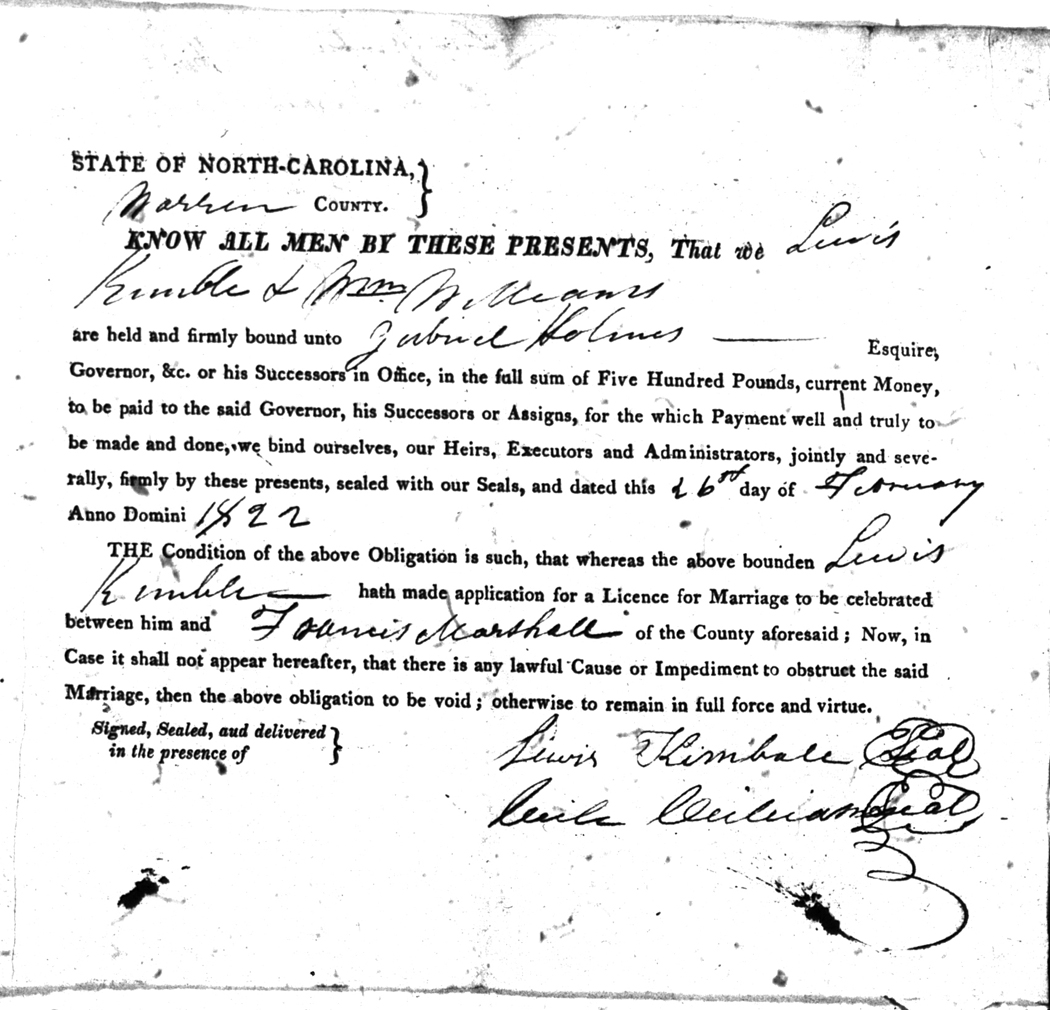 STATE OF NORTH-CAROLINA,
Warren COUNTY.
KNOW ALL MEN BY THESE PRESENTS, That we Lewis
Kimble & Wm Williams
are held and firmly bound unto Gabriel Holmes Esquire,
Governor, &c. or his Successors in Office, in the full sum of Five Hundred Pounds, current Money,
to be paid to the said Governor, his Successors or Assigns, for the which Payment well and truly to
be made and done, we bind ourselves, our Heirs, Executors and Administrators, jointly and seve-
rally, firmly by these presents, sealed with our Seals, and dated this day of February
Anno Domini 1822
THE Condition of the above Obligation is such, that whereas the above bounden Lewis
Kimble hath made application for a Licence for Marriage to be celebrated
between him and Francis Marshall of the County aforesaid; Now, in
Case it shall not appear hereafter, that there is any lawful Cause or Impediment to obstruct the said
Marriage, then the above obligation to be void; otherwise to remain in full force and virtue.
Signed, Sealed, aud delivered
in the presence of
Lewis Kimball Seal
Williams Seal